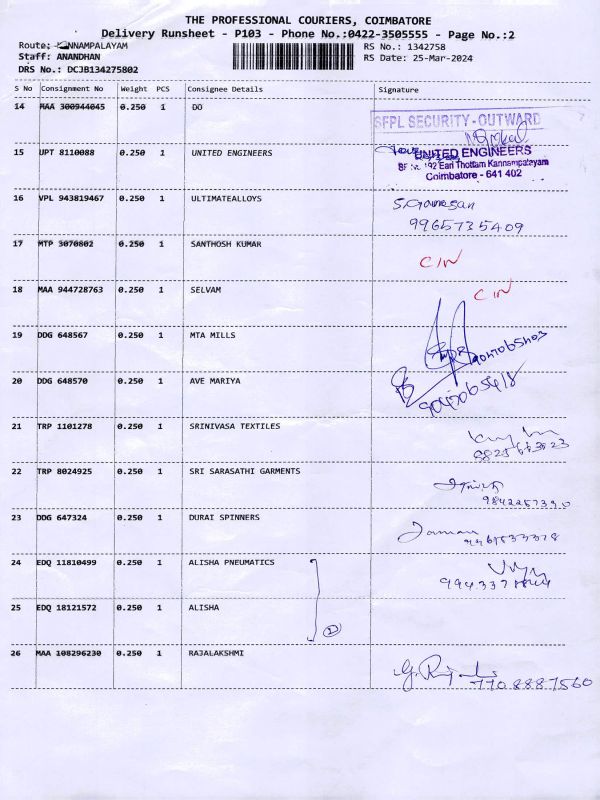 THE PROFESSIONAL COURIERS, COIMBATORE
Delivery Runsheet - P103 - Phone No.:0422-3505555 - Page No.:2
Route: KANNAMPALAYAM RS No.: 1342758
Staff: ANANDHAN RS Date: 25-Mar-2024
DRS No.: DCJB134275802
S No Consignment No Weight PCS Consignee Details Signature
14 MAA 300944045 0.250 1 DO
SFPL SECURITY-OUTWARD
15 UPT 8110088 0.250 1 UNITED ENGINEERS
UNITED ENGINEERS
192 Eari Thottam Kannampalayam
Coimbatore - 641 402
16 VPL 943819467 0.250 1 ULTIMATEALLOYS S. Ganesan
9965735409
17 MTP 3070802 0.250 1 SANTHOSH KUMAR
C/N
18 MAA 944728763 0.250 1 SELVAM C/N
19 DDG 648567 0.250 1 MTA MILLS
20 DDG 648570 0.250 1 AVE MARIYA
21 TRP 1101278 0.250 1 SRINIVASA TEXTILES
22 TRP 8024925 0.250 1 SRI SARASATHI GARMENTS
9842257390
23 DDG 647324 0.250 1 DURAI SPINNERS
24 EDQ 11810499 0.250 1 ALISHA PNEUMATICS
25 EDQ 18121572 0.250 1 ALISHA
2
26 MAA 108296230 0.250 1 RAJALAKSHMI
7708887560